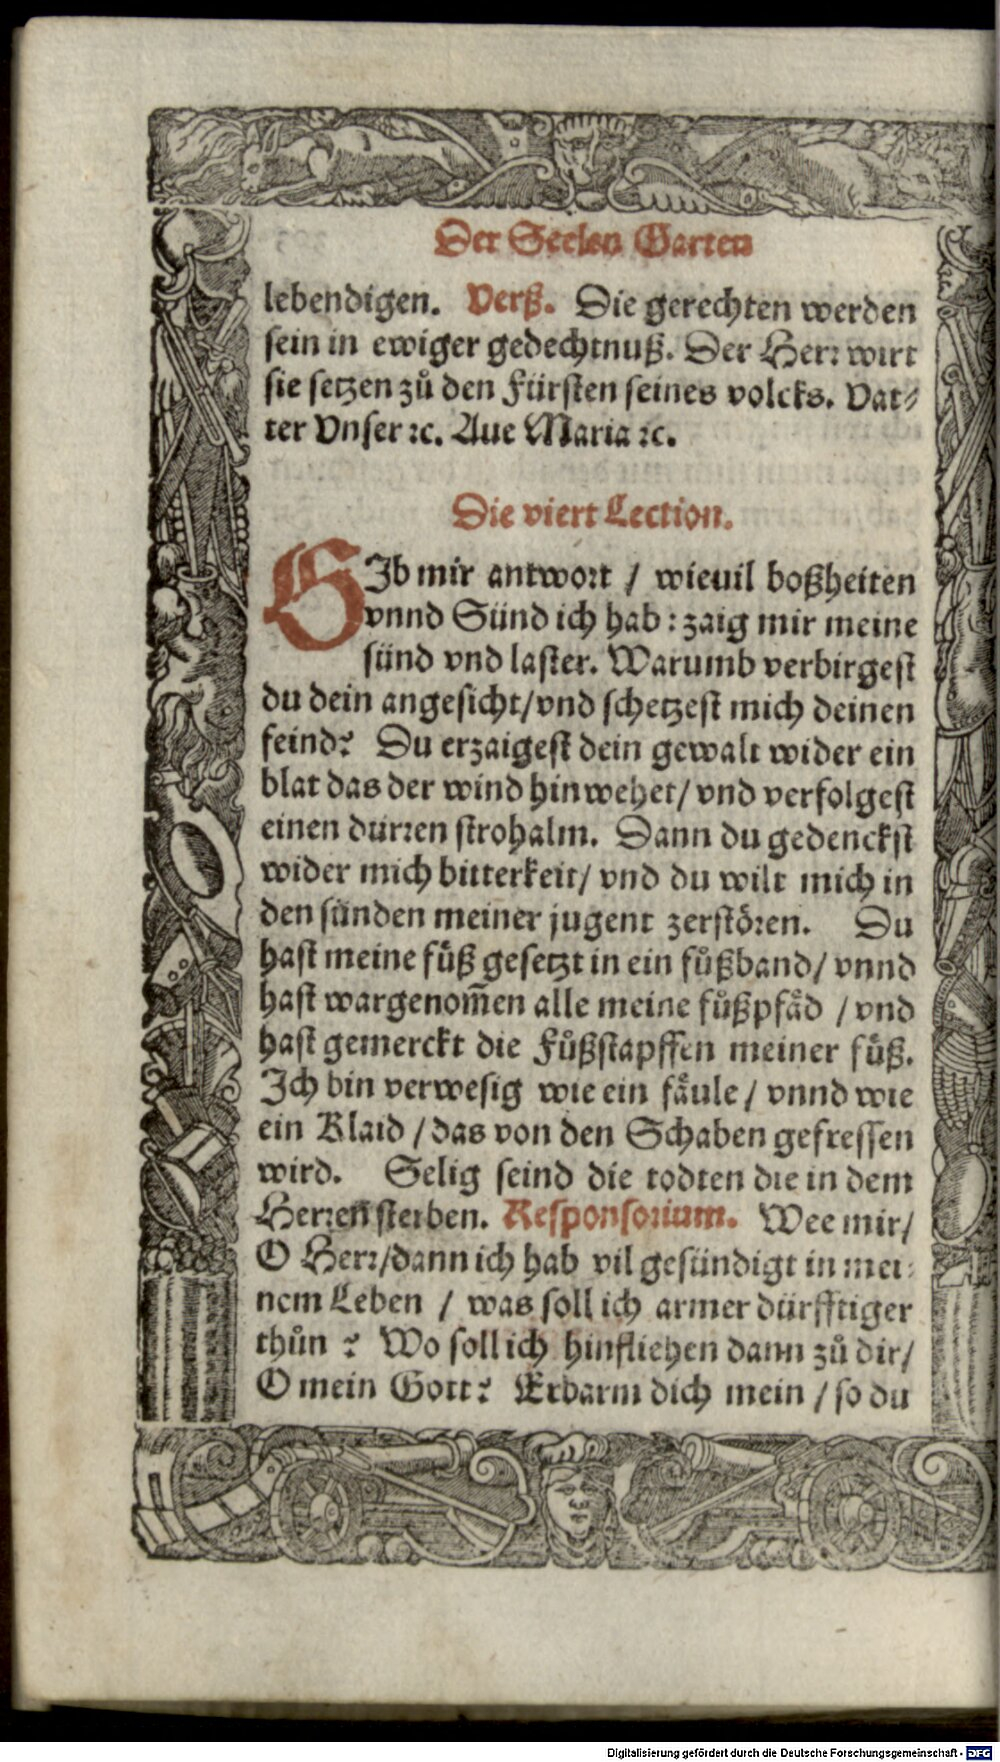 Der Seelen Garten
lebendigen. Verß. Die gerechten werden
sein in ewiger gedechtnuß. Der Herr wirt
sie setzen zů den Fürsten seines volcks. Vat⸗
ter Vnser ꝛc. Aue Maria ꝛc.
Die viert Lection.
GIb mir antwort / wieuil boßheiten
vnnd Sünd ich hab : zaig mir meine
sünd vnd laster. Warumb verbirgest
du dein angesicht / vnd schetzest mich deinen
feind? Du erzaigest dein gewalt wider ein
blat das der wind hinwehet / vnd verfolgest
einen dürren strohalm. Dann du gedenckst
wider mich bitterkeit / vnd du wilt mich in
den sünden meiner jugent zerstören. Du
hast meine fůß gesetzt in ein fůßband / vnnd
hast wargenom̄en alle meine fůßpfåd / vnd
hast gemerckt die Fůßstapffen meiner fůß.
Ich bin verwesig wie ein fåule / vnnd wie
ein Klaid / das von den Schaben gefressen
wird. Selig seind die todten die in dem
Herren sterben. Responsorium. Wee mir /
O Herr / dann ich hab vil gesündigt in mei⸗
nem Leben / was soll ich armer dürfftiger
thůn ? Wo soll ich hinfliehen dann zů dir /
O mein Gott? Erbarm dich mein / so du
Digitalisierung gefördert durch die Deutsche Forschungsgemeinschaft - DFG